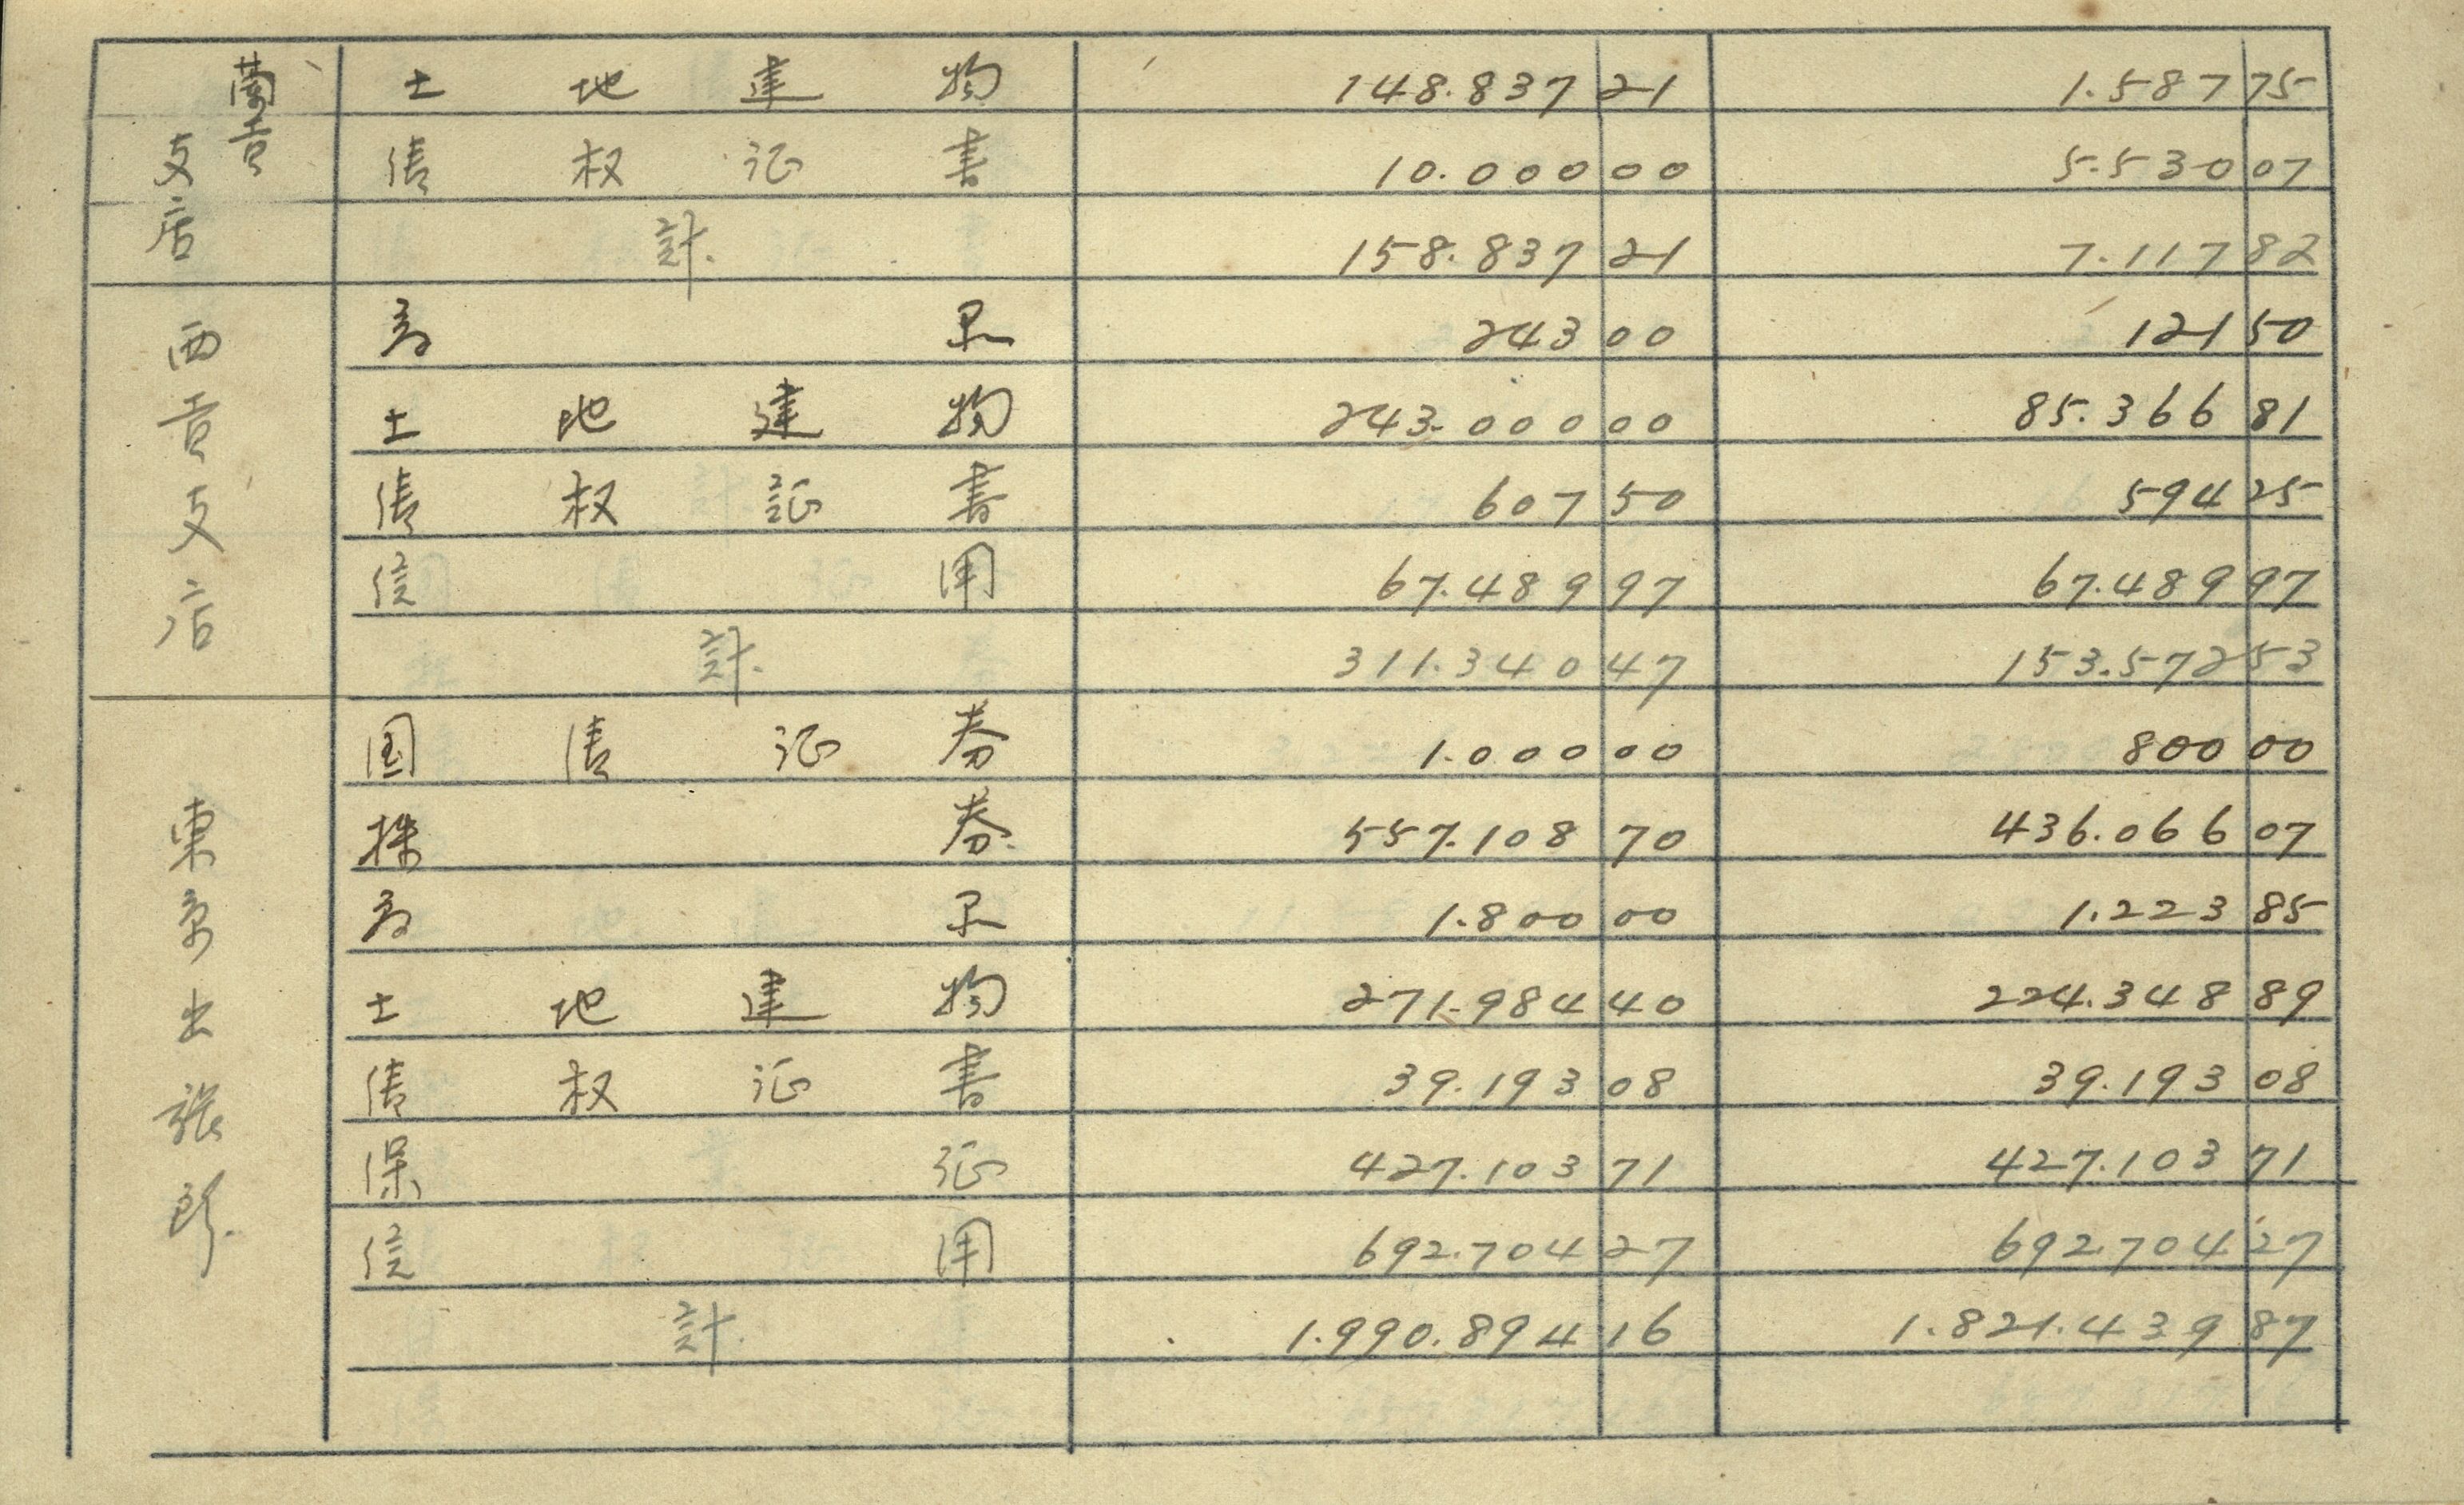 蘭貢支店
土地建物 148.837 21 1.587 75
債权証書 10.000 00 5.530 07
計. 158.837 21 7.117 82
西貢支店
商品 243 00 121 50
土地建物 243.000 00 85.366 81
債权証書 607 50 594 25
信用 67.489 97 67.489 97
計. 311.340 47 153.572 53
東京出張所.
国債証券 1.000 00 800 00
株券. 557.108 70 436.066 07
商品 1.800 00 1.223 85
土地建物 271.984 40 224.348 89
債权証書 39.193 08 39.193 08
保証 427.103 71 427.103 71
信用 692.704 27 692.704 27
計. 1.990.894 16 1.821.439 87